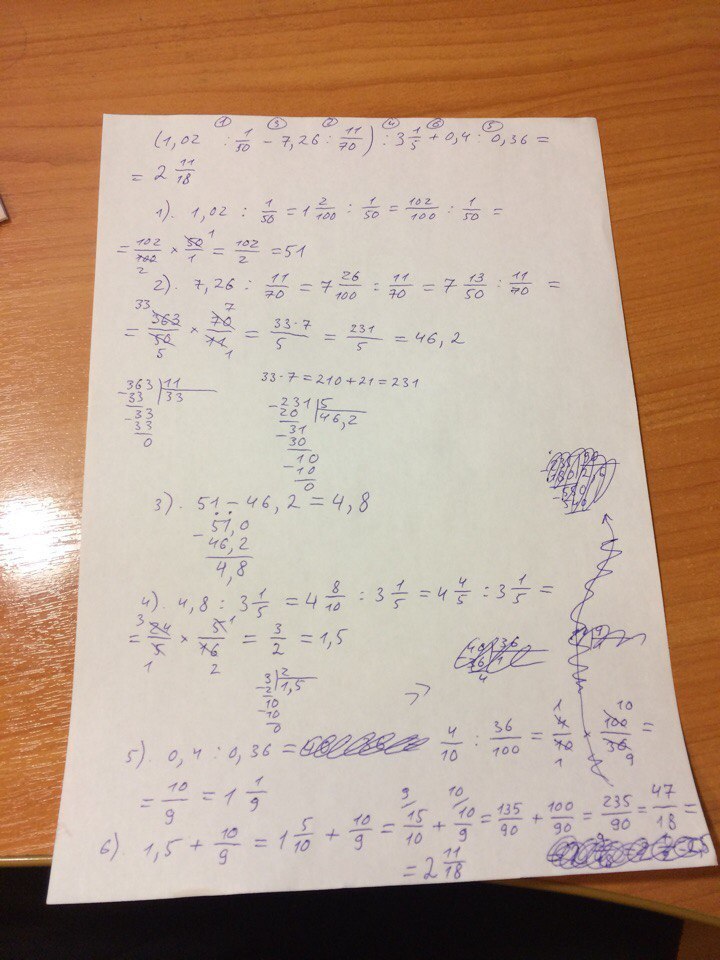 ① ③ ② ④ ⑥ ⑤
(1,02 : 1/50 - 7,26 : 11/70) : 3 1/5 + 0,4 : 0,36 =
= 2 11/18
1). 1,02 : 1/50 = 1 2/100 : 1/50 = 102/100 : 1/50 =
= 102/100 2 × 50/1 1 = 102/2 = 51
2). 7,26 : 11/70 = 7 26/100 : 11/70 = 7 13/50 : 11/70 =
= 33 363/50 5 × 7 70/11 1 = 33·7/5 = 231/5 = 46,2
33·7 = 210 + 21 = 231
363 | 11
-33 | 33
-33
33
0
-231 | 5
20 | 46,2
-31
30
10
-10
0
3). 51 - 46,2 = 4,8
-51,0
46,2
4,8
4). 4,8 : 3 1/5 = 4 8/10 : 3 1/5 = 4 4/5 : 3 1/5 =
= 3 24/5 1 × 5/16 1 2 = 3/2 = 1,5
3 | 2
-2 | 1,5
10
-10
0
5). 0,4 : 0,36 = 4/10 : 36/100 = 1 4/10 1 × 10 100/36 9 =
= 10/9 = 1 1/9
6). 1,5 + 10/9 = 1 5/10 + 10/9 = 9/ 15/10 + 10/ 10/9 = 135/90 + 100/90 = 235/90 = 47/18 =
= 2 11/18